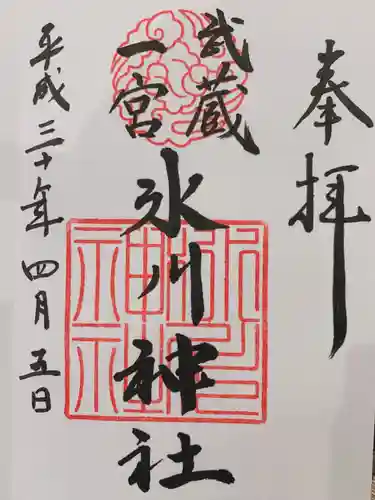 奉拝
武蔵
一宮
氷川神社
平成三十年四月五日
氷川
神社